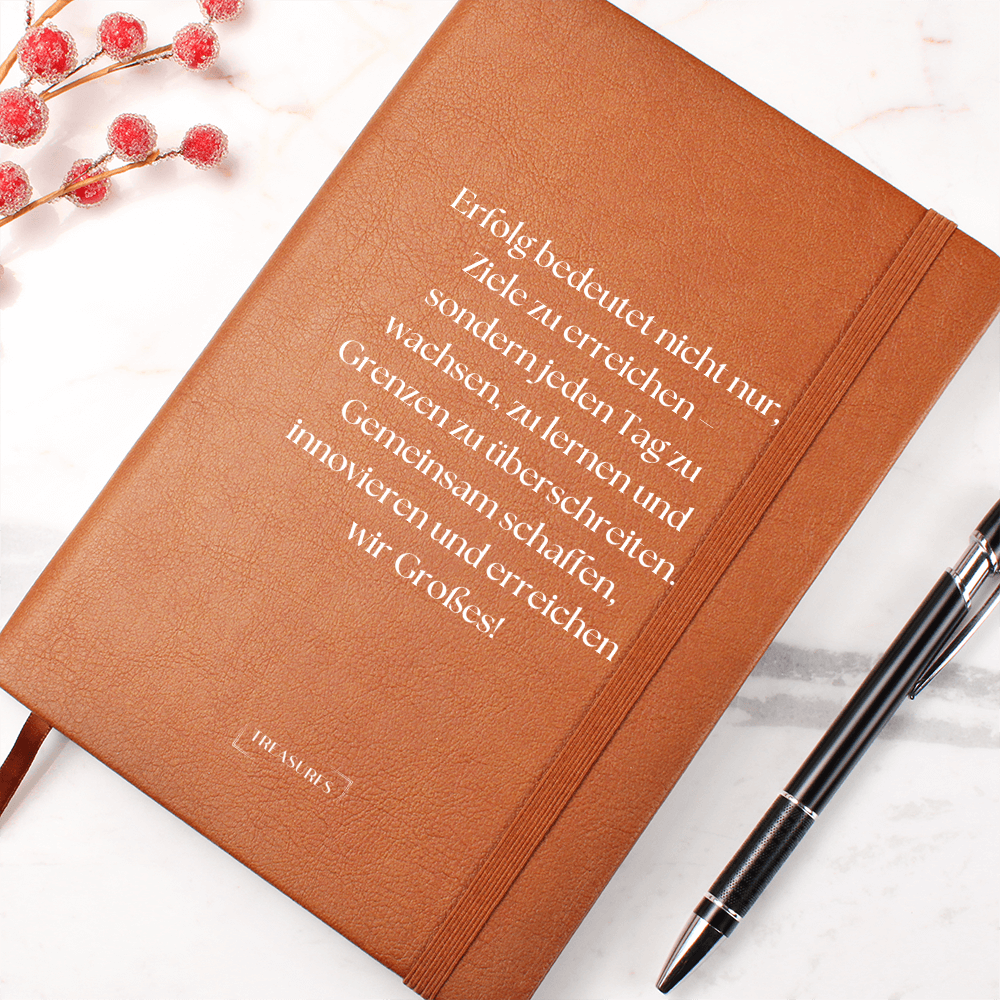 Erfolg bedeutet nicht nur,
Ziele zu erreichen –
sondern jeden Tag zu
wachsen, zu lernen und
Grenzen zu überschreiten.
Gemeinsam schaffen,
innovieren und erreichen
wir Großes!
TREASURES